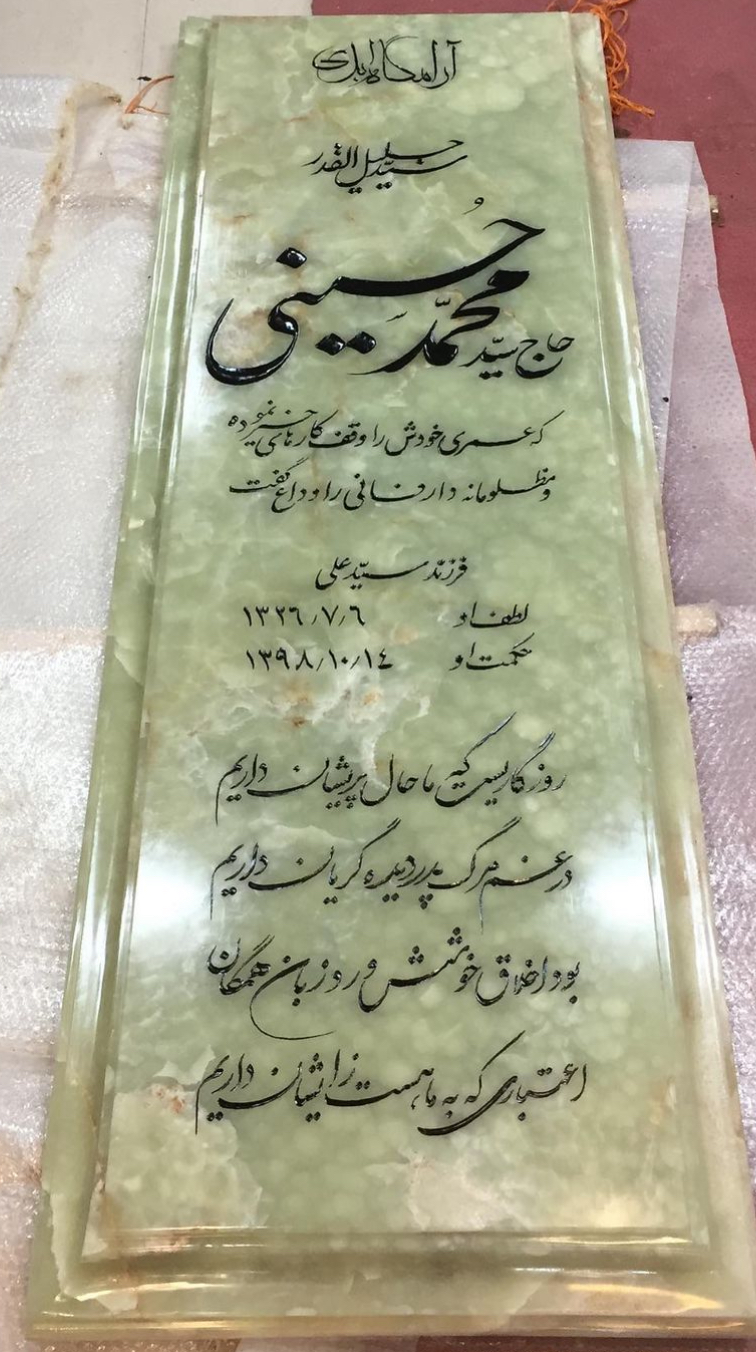 آرامگاه ابدی
سید جلیل القدر
حاج سیّد محمّد حُسینی
که عمری خودش را وقف کارهای خیر نموده
و مظلومانه دار فانی را وداع گفت
فرزند سیّد علی
لطف او ۱۳۲٦/۷/٦
حکمت او ۱۳۹۸/۱۰/۱٤
روزگاریست که ما حال پریشان داریم
در غم مرگ پدر دیده گریان داریم
بود اخلاق خوشش ورد زبان همگان
اعتباری که به ما هست ز ایشان داریم